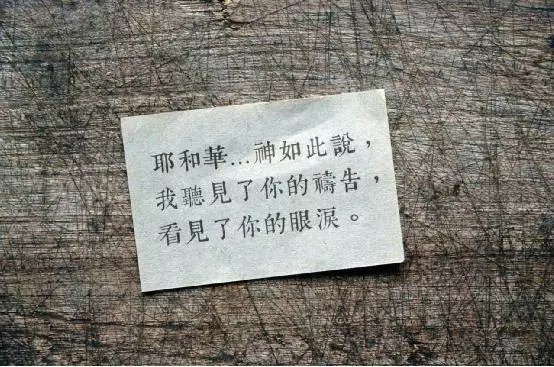 耶和華…神如此說，
我聽見了你的禱告，
看見了你的眼淚。